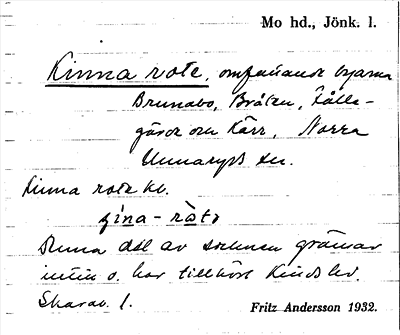 Mo hd., Jönk. l.
Kinna rote, omfattande byarna
Brunabo, Bråten, Fålla-
gärde och Kärr, Norra
Unnaryds sn.
Kinna rote kv.
Denna del av socknen gränsar
intill o. har tillhört Kinds hd.
Skarab. l.
Fritz Andersson 1932.